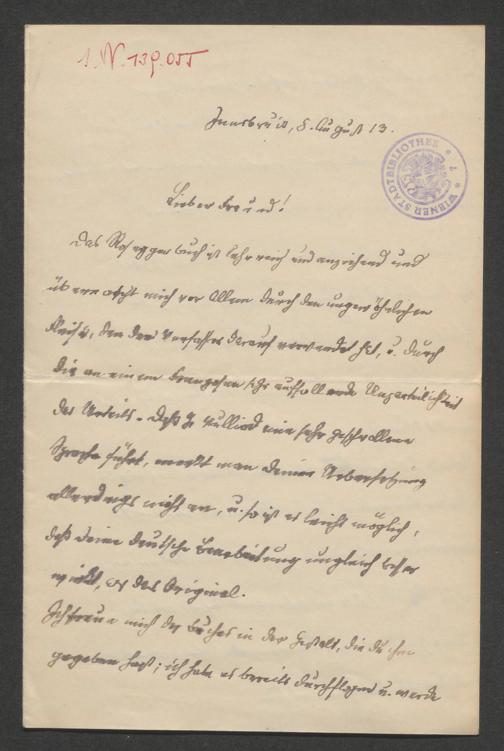 I.N. 139.055
Innsbruck, 8. August 13.
WIENER STADTBIBLIOTHEK
Lieber Freund!
Das Roseggerbuch ist lehrreich und anziehend und
überrascht mich vor Allem durch den ungewöhnlichen
Fleiß, den der Verfasser darauf verwendet hat, u. durch
die an einem Franzosen sehr auffallende Unparteilichkeit
des Urteils. Daß Vulliod eine sehr geschwollene
Sprache führt, merkt man deiner Uebersetzung
allerdings nicht an, u. so ist es leicht möglich,
daß deine deutsche Bearbeitung ungleich besser
wirkt, als das Original.
Ich freue mich des Buches in der Gestalt, die du ihm
gegeben hast; ich habe es bereits durchflogen u. werde